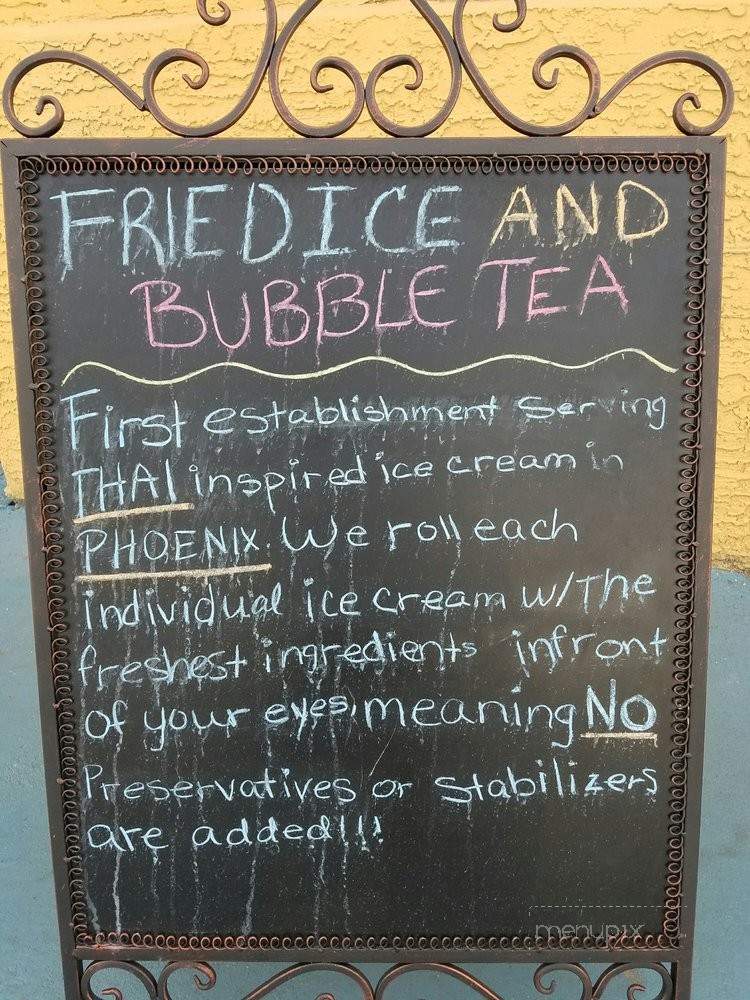 FRIED ICE AND
BUBBLE TEA
First establishment Serving
THAI inspired ice cream in
PHOENIX. We roll each
individual ice cream w/The
freshest ingredients infront
of your eyes, meaning NO
Preservatives or stabilizers
are added!!!
menupix